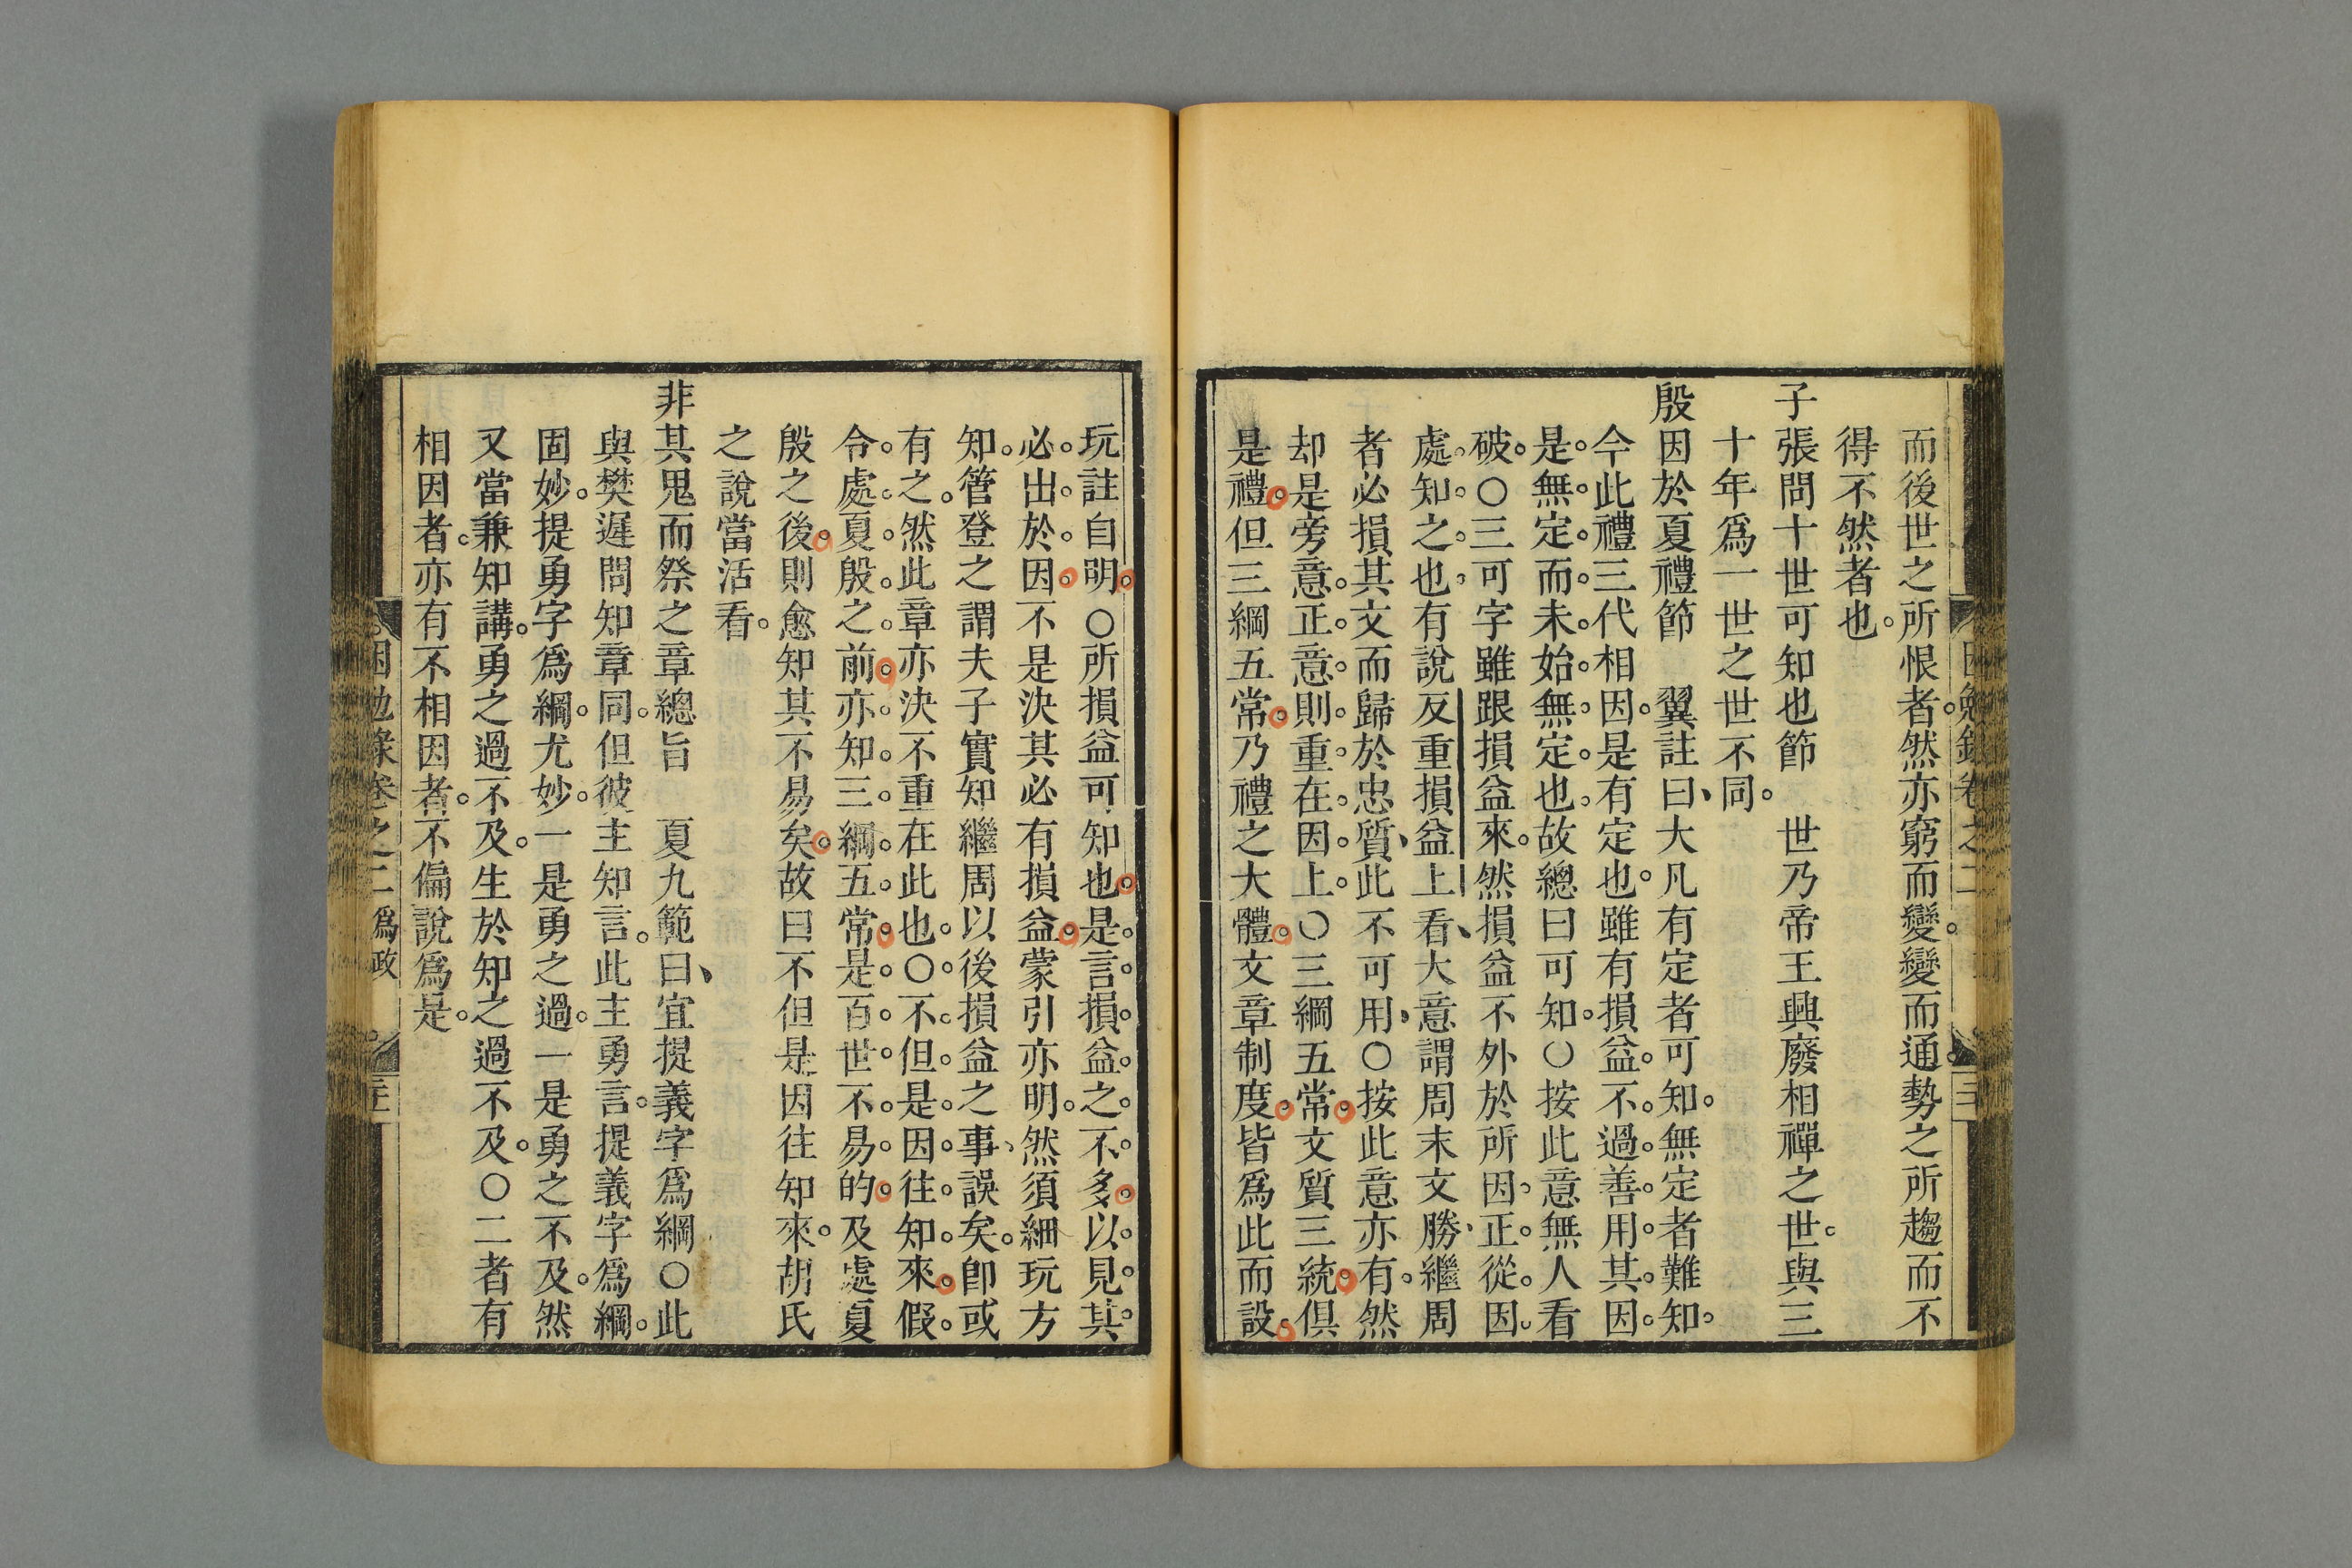 而後世之所恨者。然亦窮而變。變而通。勢之所趨而不
得不然者也。
子張問十世可知也節　世乃帝王興廢相禪之世。與三
十年爲一世之世不同。
殷因於夏禮節　翼註曰、大凡有定者可知。無定者難知。
今此禮三代相因。是有定也。雖有損益。不過善用其因。
是無定而未始無定也。故總曰可知。○按此意無人看
破。○三可字雖跟損益來。然損益不外於所因。正從因
處知之也。有說反重損益上看、大意謂周末文勝、繼周
者必損其文而歸於忠質、此不可用、○按此意亦有。然
却是旁意。正意則重在因上。○三綱五常。文質三統。俱
是禮。但三綱五常。乃禮之大體。文章制度。皆爲此而設。
困勉錄卷之二
玩註自明。○所損益可知也。是言損益之不多。以見其
必出於因。不是決其必有損益。蒙引亦明。然須細玩方
知。管登之謂夫子實知繼周以後損益之事、誤矣。卽或
有之。然此章亦決不重在此也。○不但是因往知來。假
令處夏殷之前。亦知三綱五常。是百世不易的。及處夏
殷之後。則愈知其不易矣。故曰不但是因往知來。胡氏
之說當活看。
非其鬼而祭之章總旨　夏九範曰、宜提義字爲綱○此
與樊遲問知章同。但彼主知言。此主勇言。提義字爲綱。
固妙。提勇字爲綱。尤妙。一是勇之過。一是勇之不及。然
又當兼知講。勇之過不及。生於知之過不及。○二者有
相因者。亦有不相因者。不偏說爲是。
困勉錄卷之二　爲政